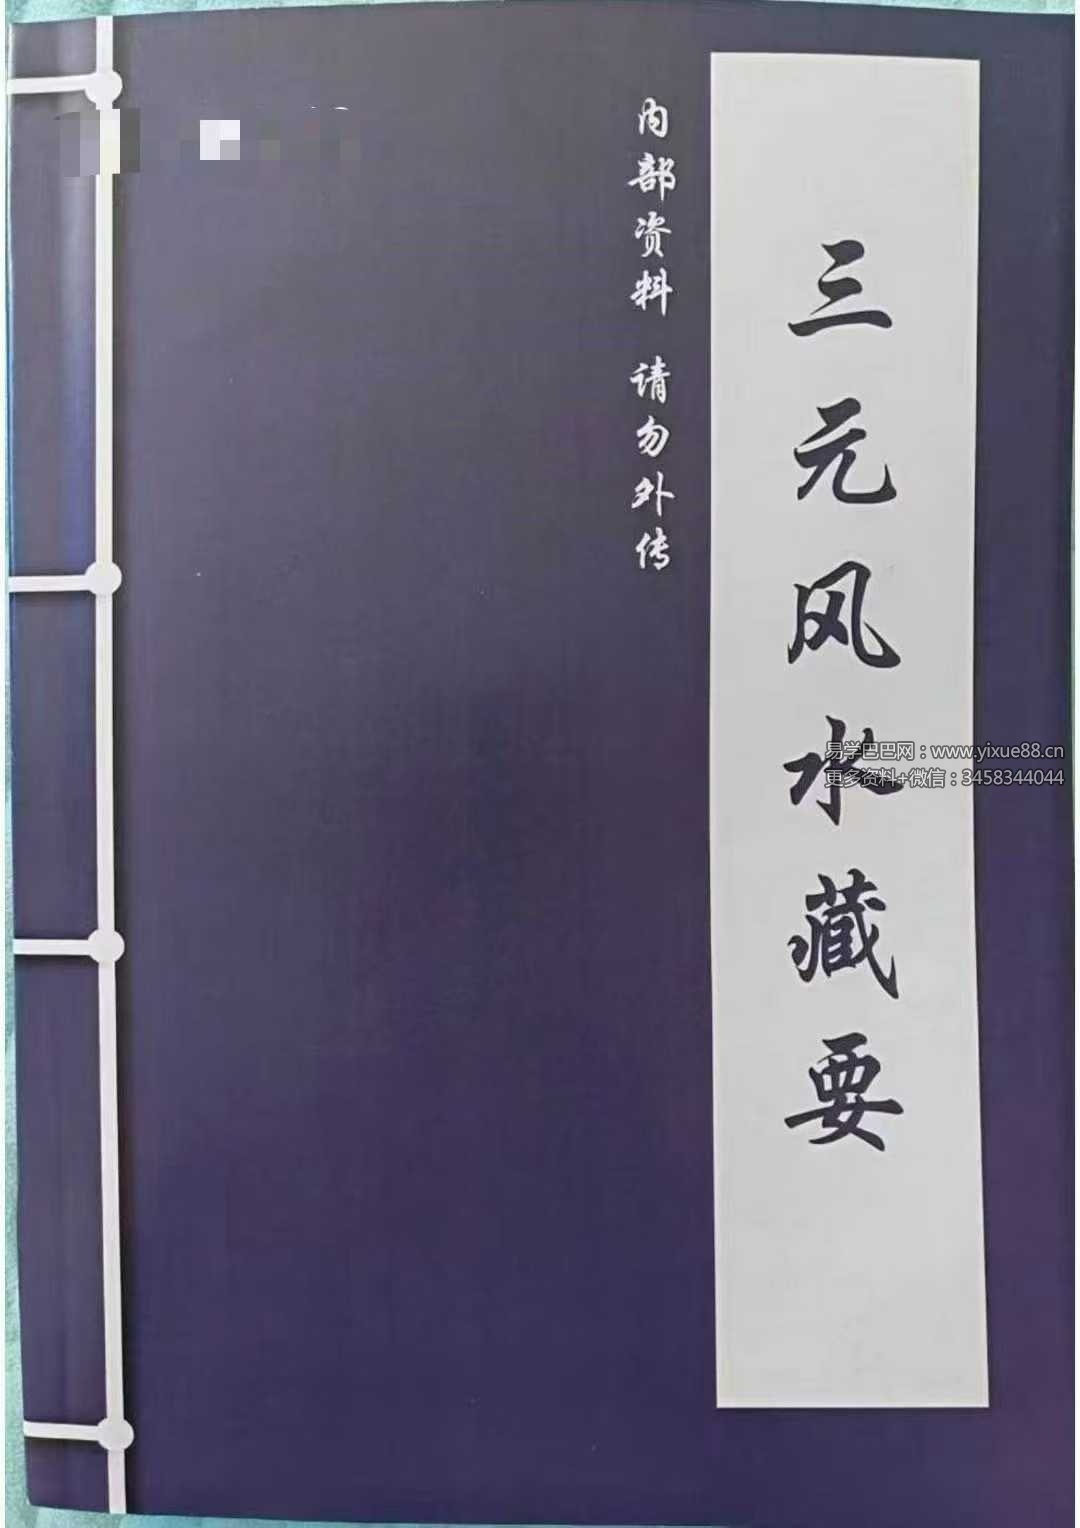 三元风水藏要
内部资料 请勿外传
易学巴巴网：www.yixue88.cn
更多资料+微信：3458344044